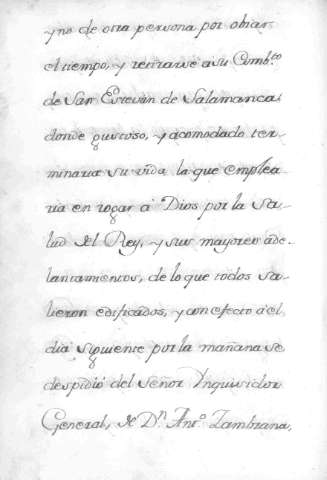 y no de otra persona por obiar
el tiempo, y retirarse a su Comb.to
de San Estevan de Salamanca,
donde gustoso, y acomodado ter-
minaria su vida la que emplea-
ria en rogar a Dios por la Sa-
lud del Rey, y sus mayores ade-
lantamientos, de lo que todos sa-
lieron edificados, y con efecto a el
dia siguiente por la mañana se
despidió del Señor Ynquisidor
General, de D.n Ant.o Zambrana,